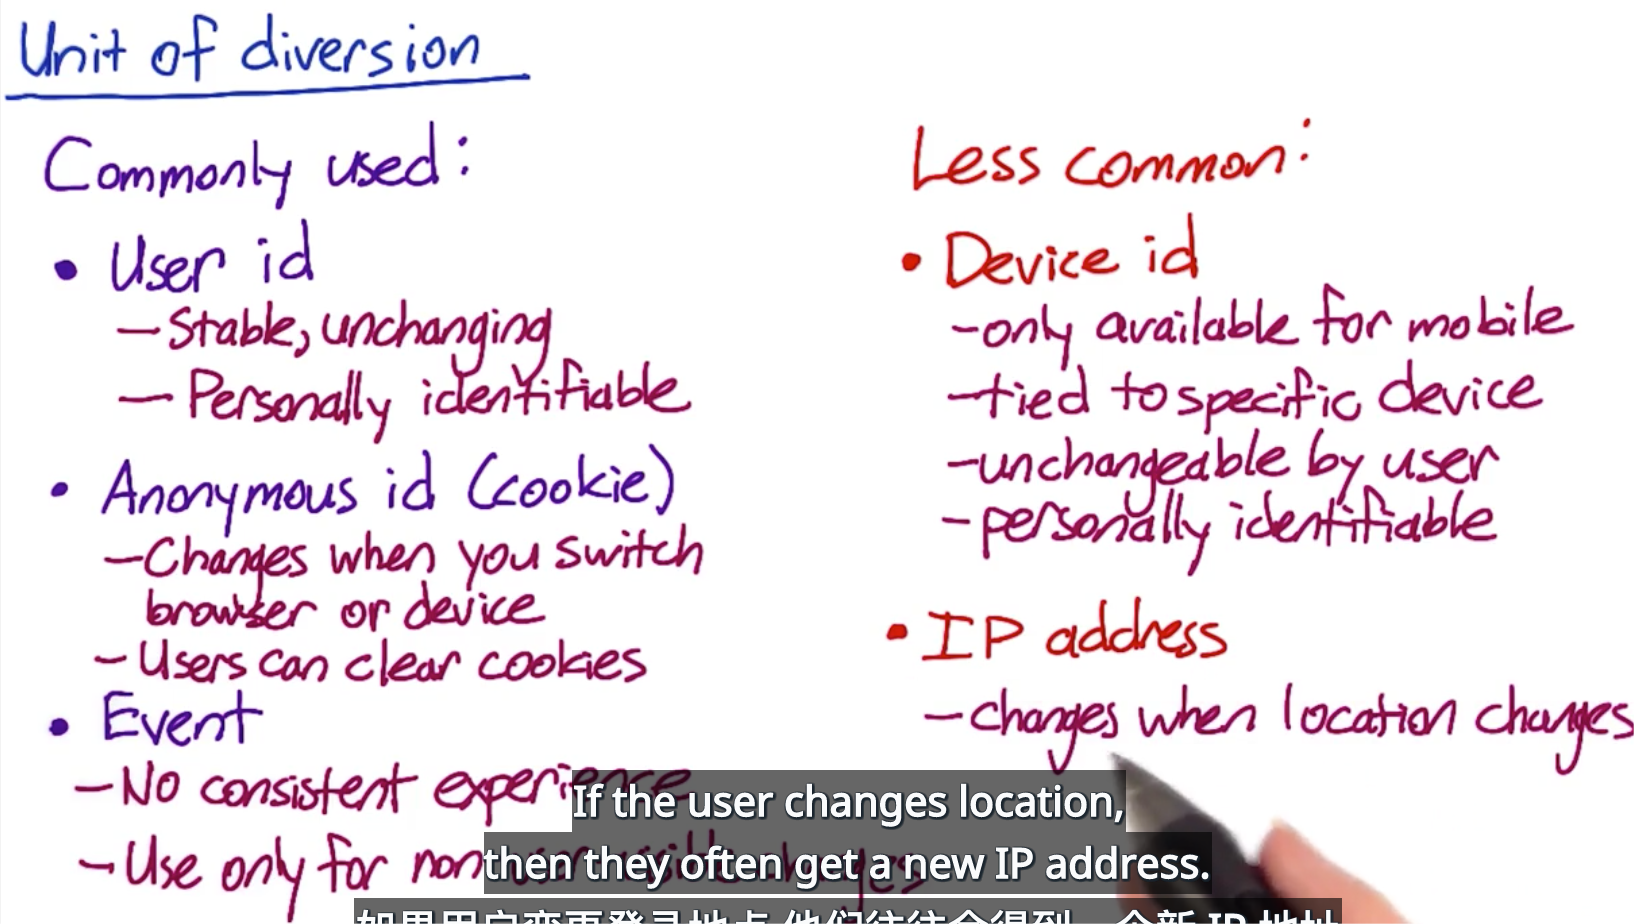 Unit of diversion
Commonly used:
• User id
— Stable, unchanging
— Personally identifiable
• Anonymous id (cookie)
— Changes when you switch
browser or device
- Users can clear cookies
• Event
— No consistent experience
— Use only for non changes
Less common:
• Device id
- only available for mobile
- tied to specific device
- unchangeable by user
- personally identifiable
• IP address
- changes when location changes
If the user changes location,
then they often get a new IP address.
如果用户变更登录地点 他们往往会得到一个新 IP 地址